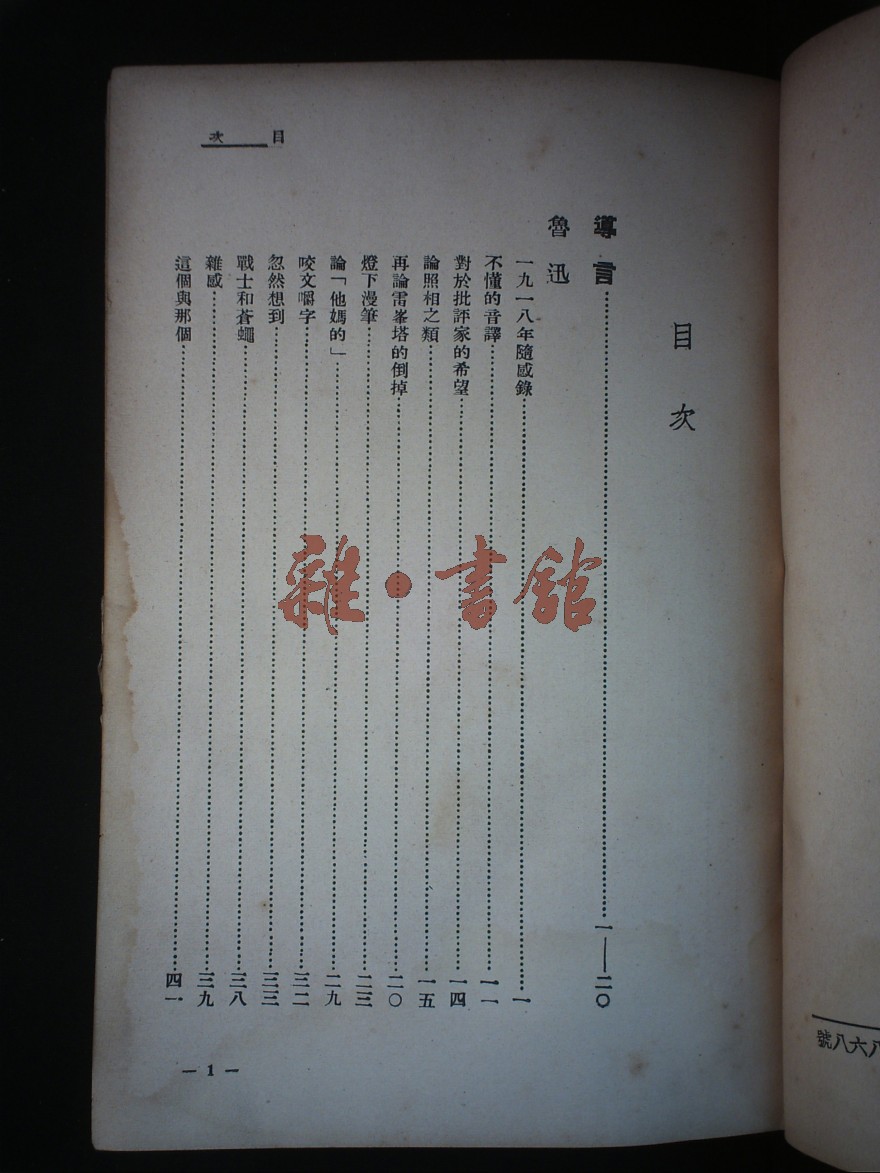 目次
目次
導言……一——二〇
魯迅
一九一八年隨感錄……一
不懂的音譯……一一
對於批評家的希望……一四
論照相之類……一五
再論雷峯塔的倒掉……二〇
燈下漫筆……二三
論「他媽的」……二九
咬文嚼字……三二
忽然想到……三三
戰士和蒼蠅……三八
雜感……三九
這個與那個……四一
— 1 —
雜·書館
八六八號